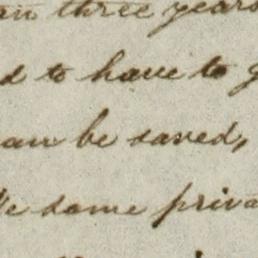 an three years
d to have to g
can be saved,
le same priva